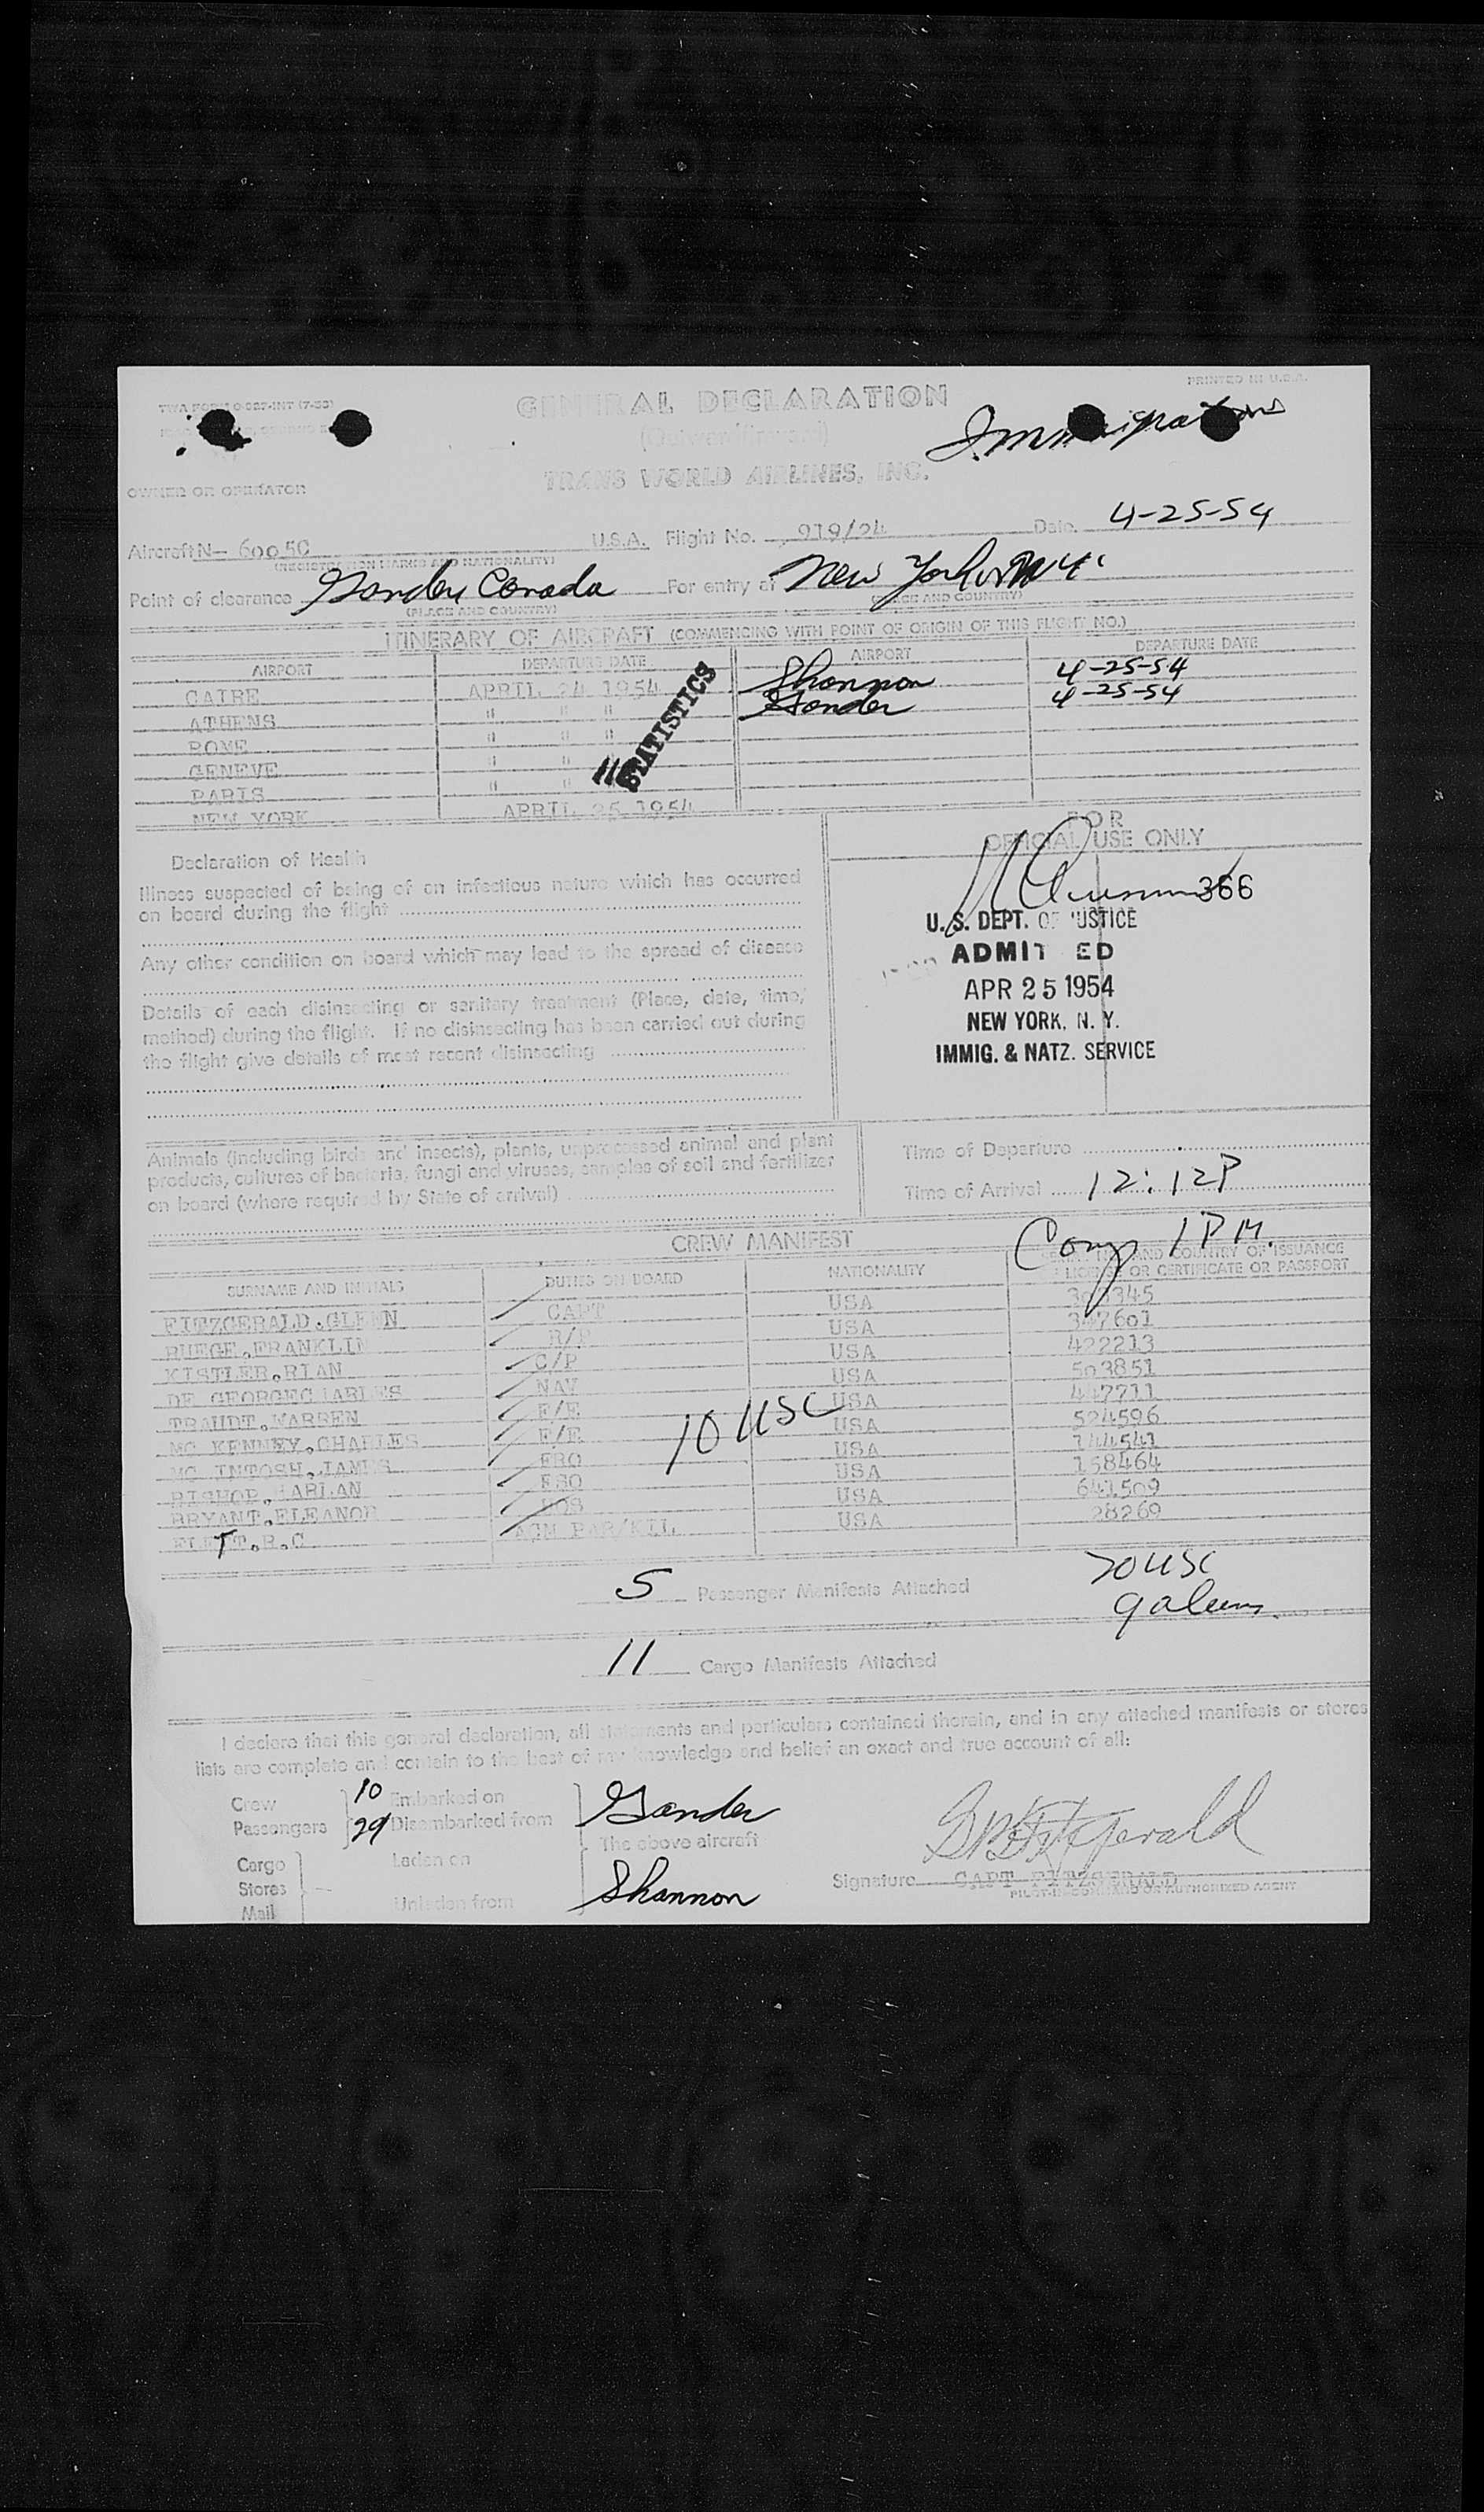 PRINTED IN U.S.A.
GENERAL DECLARATION
(Outward/Inward)
Immigration
TRANS WORLD AIRLINES, INC.
OWNER OR OPERATOR
Aircraft N- 6005C U.S.A. Flight No. 919/24 Date 4-25-54
(REGISTRATION MARKS AND NATIONALITY)
Point of clearance Gander Canada For entry at New York N.Y.
(PLACE AND COUNTRY) (PLACE AND COUNTRY)
ITINERARY OF AIRCRAFT (COMMENCING WITH POINT OF ORIGIN OF THIS FLIGHT NO.)
AIRPORT DEPARTURE DATE AIRPORT DEPARTURE DATE
CAIRE APRIL 24 1954 Shannon 4-25-54
ATHENS " " " Gander 4-25-54
ROME " " "
GENEVE " "
PARIS " "
NEW YORK APRIL 25 1954
STATISTICS
FOR
OFFICIAL USE ONLY
Declaration of Health
Illness suspected of being of an infectious nature which has occurred
on board during the flight
366
U.S. DEPT. OF JUSTICE
ADMITTED
APR 25 1954
NEW YORK, N.Y.
IMMIG. & NATZ. SERVICE
Any other condition on board which may lead to the spread of disease
Details of each disinsecting or sanitary treatment (Place, date, time,
method) during the flight. If no disinsecting has been carried out during
the flight give details of most recent disinsecting
Animals (including birds and insects), plants, unprocessed animal and plant
products, cultures of bacteria, fungi and viruses, samples of soil and fertilizer
on board (where required by State of arrival)
Time of Departure
Time of Arrival 12:12P
Comp 1PM.
CREW MANIFEST
SURNAME AND INITIALS DUTIES ON BOARD NATIONALITY AND COUNTRY OF ISSUANCE
LICENSE OR CERTIFICATE OR PASSPORT
FITZGERALD.GLENN CAPT USA 345
RUEGE.FRANKLIN USA 347601
KISTLER.RIAN C/P USA 422213
DE GEORGE CHARLES NAV USA 503851
TRAUDT.WARREN F/E USA 447711
MC KENNEY.CHARLES F/E USA 524596
MC INTOSH.JAMES FRO USA 144541
BISHOP.HARLAN FSO USA 158464
BRYANT.ELEANOR HOS USA 641509
T.R.C USA 28269
10 USC
5 Passenger Manifests Attached
20 USC
9 aliens
11 Cargo Manifests Attached
I declare that this general declaration, all statements and particulars contained therein, and in any attached manifests or stores
lists are complete and contain to the best of my knowledge and belief an exact and true account of all:
Crew 10 Embarked on Gander
Passengers 29 Disembarked from
The above aircraft
Cargo Laden on
Stores
Mail Unladen from Shannon
Signature CAPT FITZGERALD
PILOT-IN-COMMAND OR AUTHORIZED AGENT